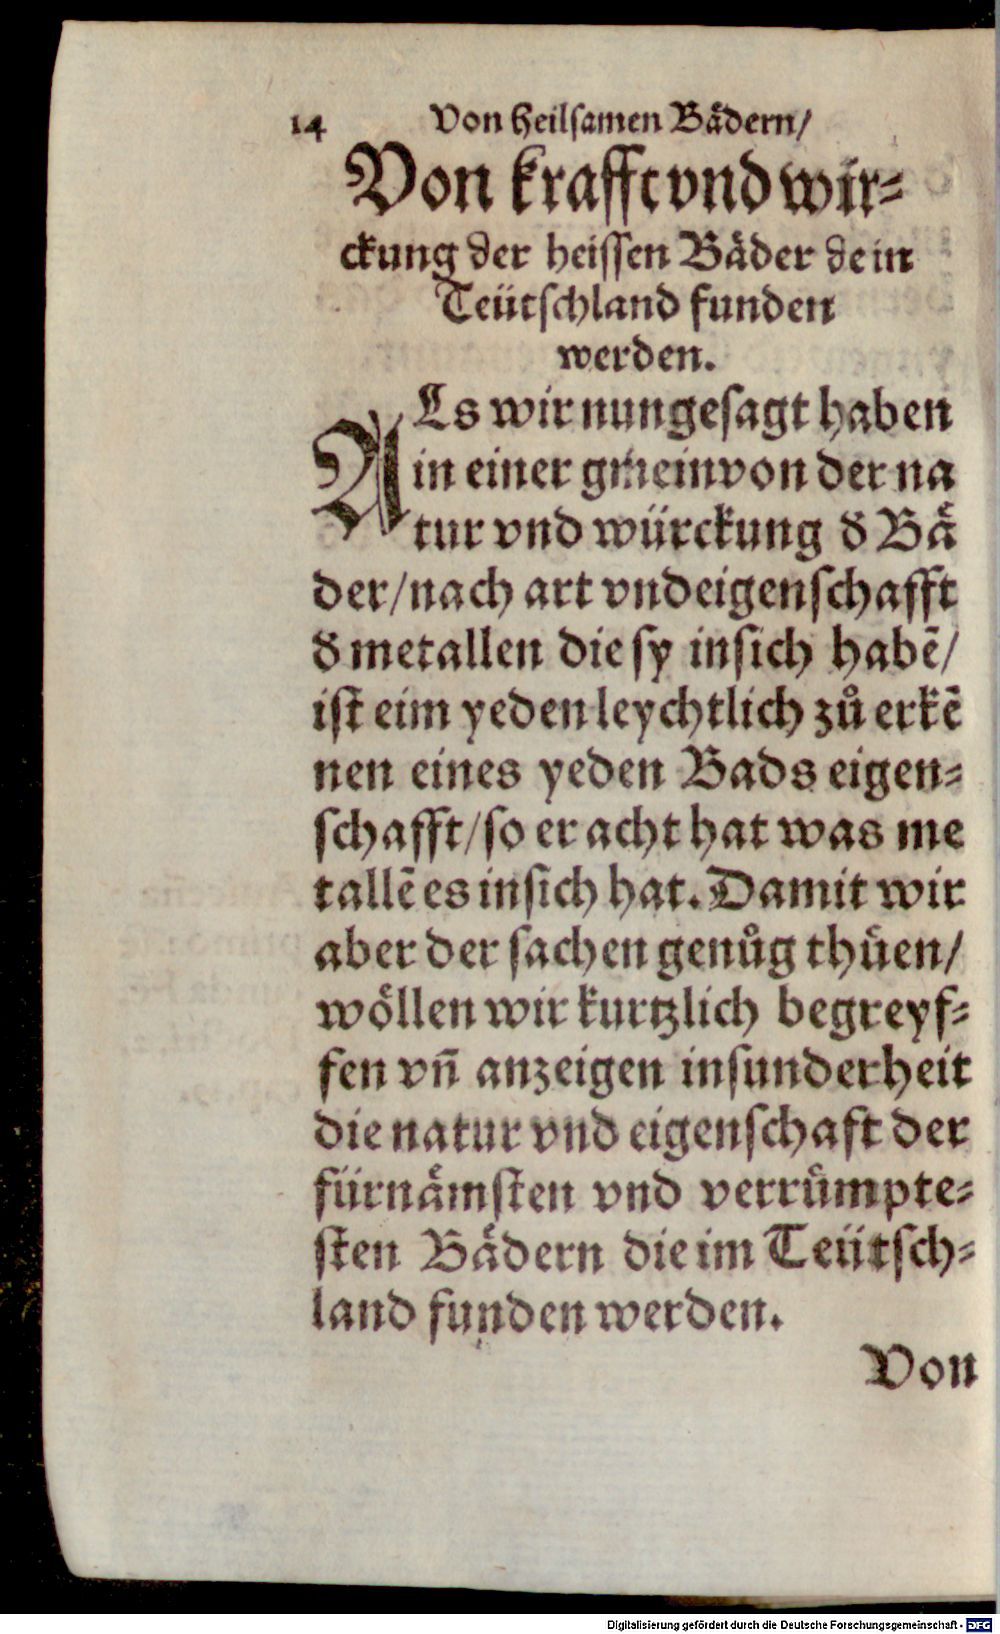 14 Von heilsamen Bådern/
Von krafft vnd wir⸗
ckung der heissen Båder de in
Teütschland funden
werden.
ALs wir nun gesagt haben
in einer gmein von der na
tur vnd würckung d̕ Bå
der/nach art vnd eigenschafft
d̕ metallen die sy in sich habē/
ist eim yeden leychtlich zů erkē
nen eines yeden Bads eigen⸗
schafft/so er acht hat was me
tallē es in sich hat. Damit wir
aber der sachen genůg thůen/
wöllen wir kurtzlich begreyf⸗
fen vñ anzeigen insunderheit
die natur vnd eigenschaft der
fürnåmsten vnd verrůmpte⸗
sten Bådern die im Teütsch⸗
land funden werden.
Von
Digitalisierung gefördert durch die Deutsche Forschungsgemeinschaft - DFG